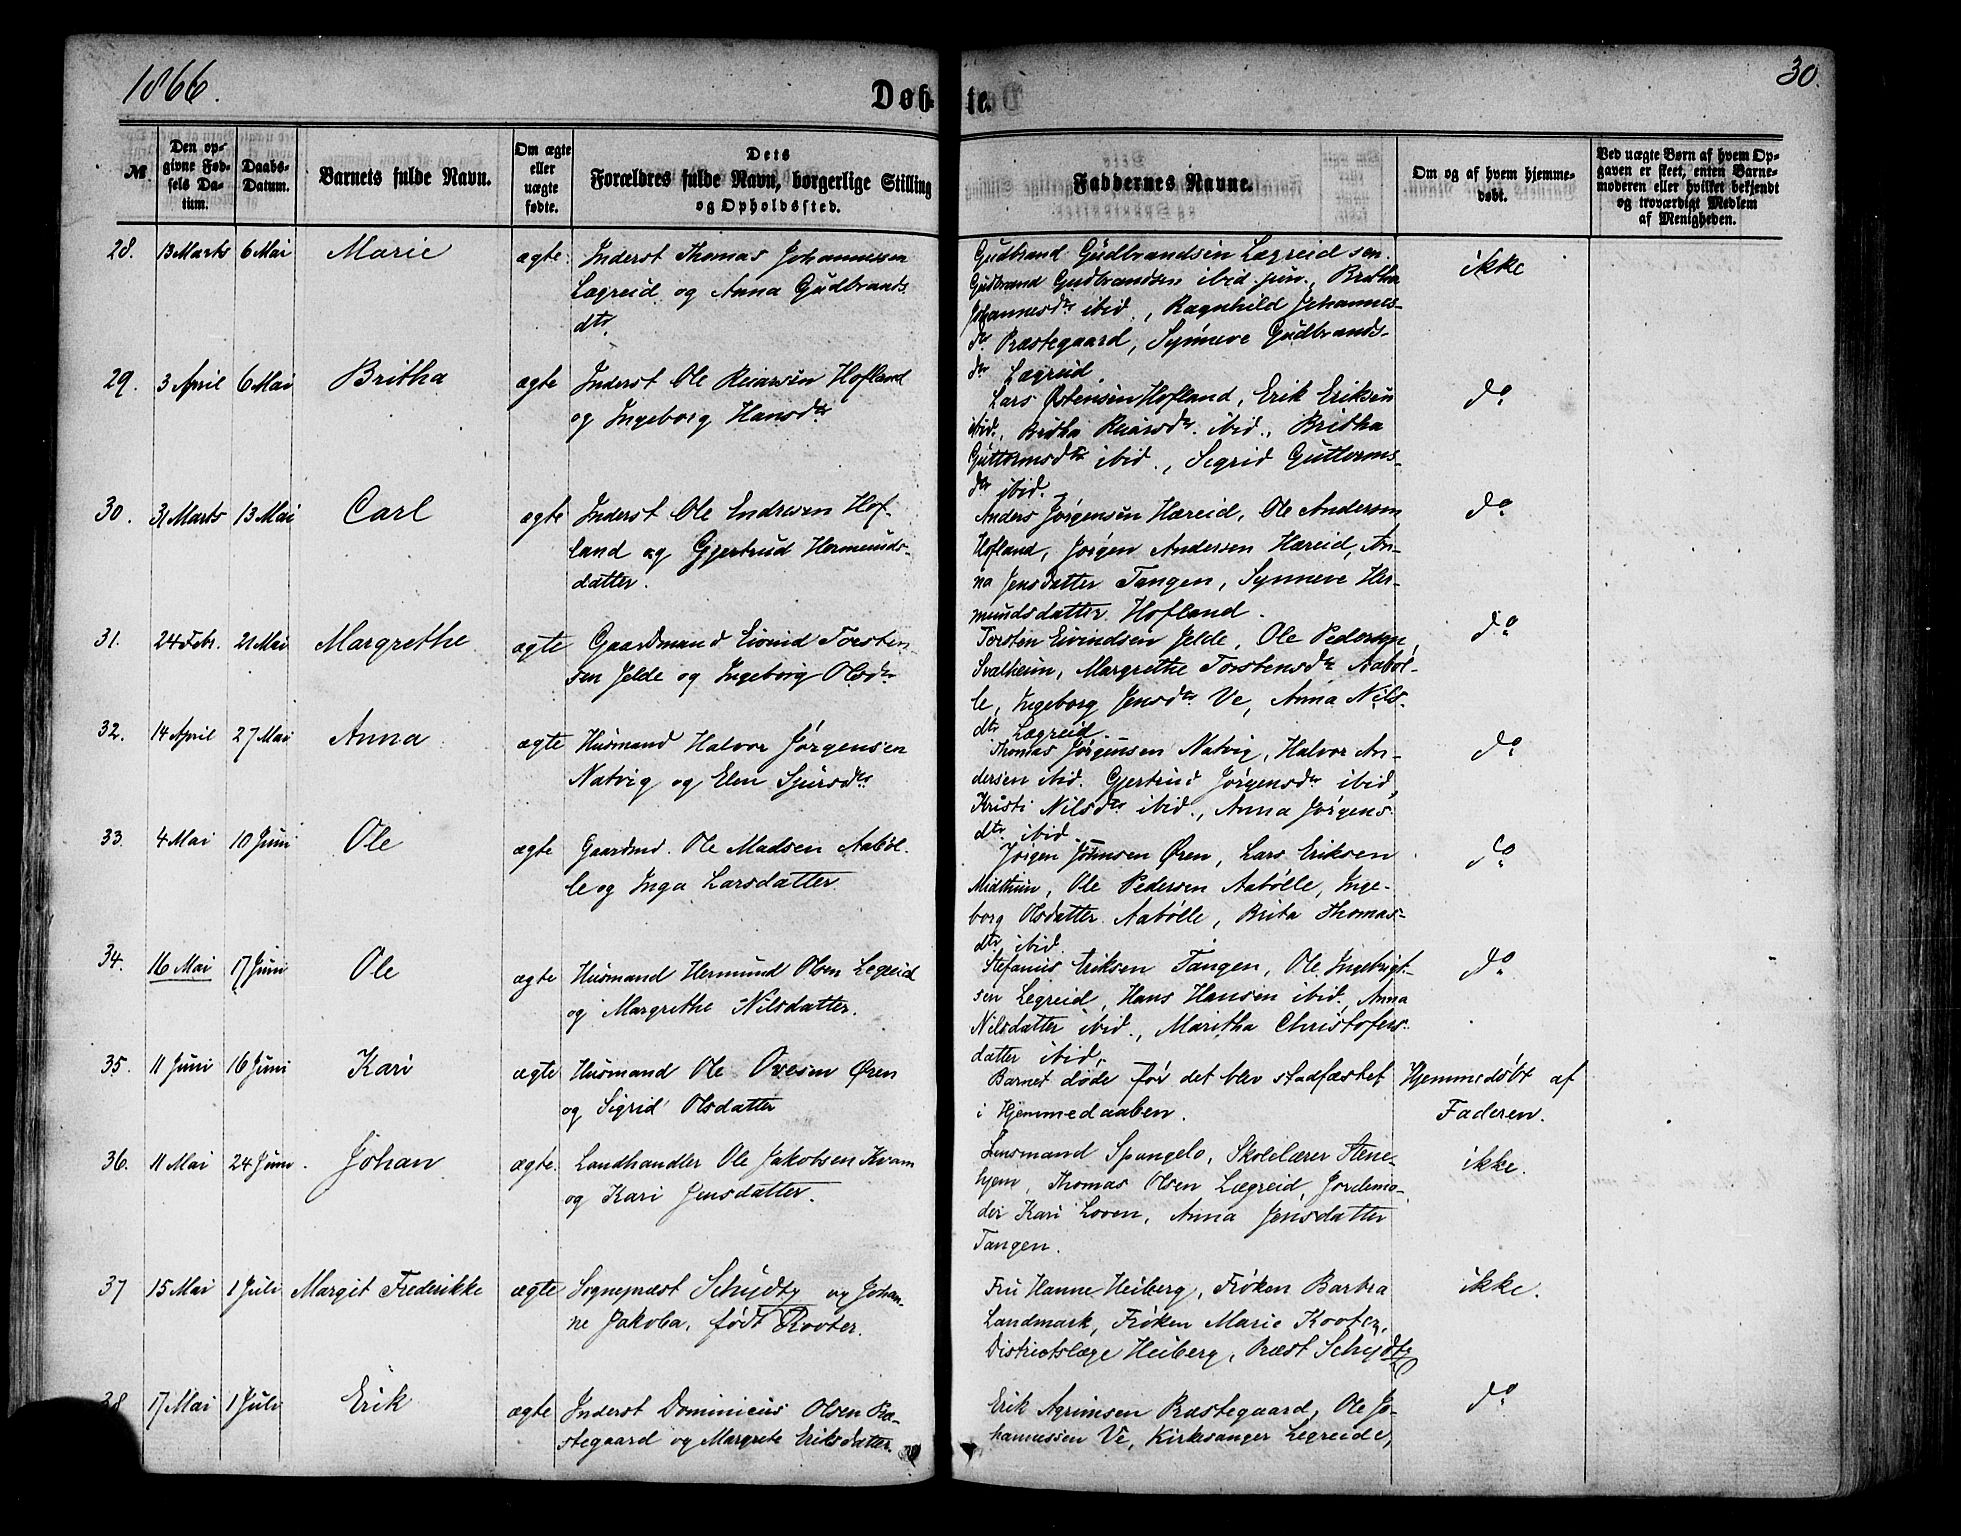 1866.
Døbte.
30.
№
Den opgivne Fødsels Datum.
Daabs-Datum.
Barnets fulde Navn.
Om ægte eller uægte fødte.
Dets Forældres fulde Navn, borgerlige Stilling og Opholdssted.
Faddernes Navne.
Om og af hvem hjemmedøbt.
Ved uægte Børn af hvem Opgaven er skeet, enten Barnemoderen eller hvilket bekjendt og troværdigt Medlem af Menigheden.
28. 13 Marts 6 Mai Marie ægte Inderst Thomas Johannesen
Lægreid og Anna Gudbrands
dtr.
Gudbrand Gudbrandsen Lægreid sen.
Gudbrand Gudbrandsen ibid. jun., Britha
Johannesdtr ibid., Ragnhild Johannes-
dtr Præstegaard, Synneve Gudbrands-
dtr Lægreid.
ikke
29. 3 April 6 Mai Britha ægte Inderst Ole Reiarsen Hofland
og Ingeborg Hansdtr
Lars Østensen Hofland, Erik Eriksen
ibid., Britha Reiarsdtr. ibid., Britha
Guttormsdtr ibid., Sigrid Guttorms-
dtr ibid.
do
30. 31 Marts 13 Mai Carl ægte Inderst Ole Endresen Hof-
land og Gjertrud Hermunds-
datter.
Anders Jørgensen Hæreid, Ole Andersen
Hofland, Jørgen Andersen Hæreid, An-
na Jensdatter Tangen, Synneve Her-
mundsdatter Hofland.
do
31. 24 Febr. 21 Mai Margrethe ægte Gaardmand Eivind Torsten-
sen Jelde og Ingeborg Olsdtr
Torsten Eivindsen Jelde, Ole Pedersen
Svalheim, Margrethe Torstensdtr Aaból-
le, Ingeborg Jensdtr Ve, Anna Nils-
dtr Lægreid.
do
32. 14 April 27 Mai Anna ægte Husmand Halvor Jørgensen
Natvig og Elen Sjursdtr
Thomas Jørgensen Natvig, Halvor An-
dersen ibid. Gjertrud Jørgensdtr ibid,
Kristi Nilsdtr ibid., Anna Jørgens-
dtr ibid.
do
33. 4 Mai 10 Juni Ole ægte Gaardmd. Ole Madsen Aabøl-
le og Inga Larsdatter
Jørgen Johnsen Øren, Lars Eriksen
Midthun, Ole Pedersen Aabølle, Inge-
borg Olsdatter Aabølle, Brita Thomas-
dtr ibid.
do
34. 16 Mai 17 Juni Ole ægte Husmand Hermund Olsen Legreid
og Margrethe Nilsdatter.
Stefanus Eriksen Tangen, Ole Ingebrigt-
sen Legreid, Hans Hansen ibid. Anna
Nilsdatter ibid., Maritha Christofers-
datter ibid.
do
35. 11 Juni 16 Juni Kari ægte Husmand Ole Ovesen Øren
og Sigrid Olsdatter
Barnet døde før det blev stadfæstet
i Hjemmedaaben.
Hjemmedøbt af
Faderen.
36. 11 Mai 24 Juni. Johan ægte. Landhandler Ole Jakobsen Kvam
og Kari Jensdatter.
Lensmand Spangelo, Skolelærer Stene-
hjem, Thomas Olsen Lægreid, Jordemo-
der Kari Loven, Anna Jensdatter
Tangen.
ikke.
37 15 Mai 1 Juli Margit Frederikke ægte Sognepræst Schydtz og Johan-
ne Jakoba, født Kooter.
Fru Hanne Heiberg, Frøken Bartha
Landmark, Frøken Marie Kooter,
Districtslæge Heiberg, Præst Schydtz
ikke.
38 17 Mai 1 Juli Erik ægte Inderst Dominicus Olsen Præ-
stegaard og Margrete Eriksdatter
Erik Agrimsen Præstegaard, Ole Jo-
hannessen Ve, Kirkesanger Legreide,
do